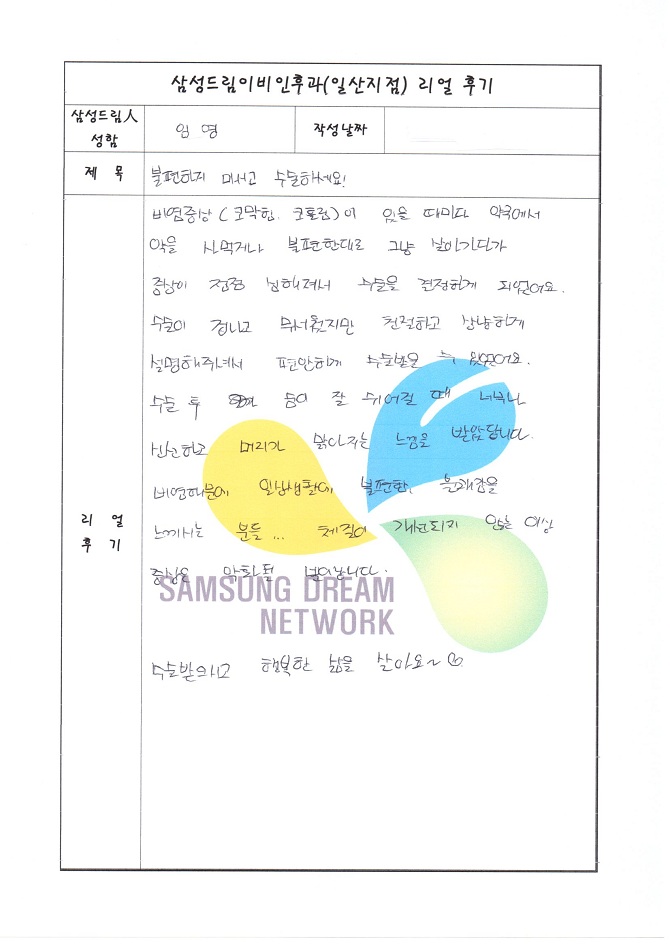 삼성드림이비인후과(일산지점) 리얼 후기
삼성드림人 성함
임 영
작성날짜
제 목
불편하지 마시고 수술하세요!
비염증상(코막힘, 코흘림)이 있을 때마다 약국에서
약을 사먹거나 불편한대로 그냥 보이기다가
증상이 점점 심해져서 수술을 결정하게 되었어요.
수술이 겁나고 무서웠지만 친절하고 상냥하게
설명해주셔서 편안하게 수술받을 수 있었어요.
수술 후 숨이 잘 쉬어질 때 너무나
신선하고 머리가 맑아지는 느낌을 받았답니다.
비염때문에 일상생활에 불편함, 불쾌감을
느끼시는 분들... 체질이 개선되지 않는 이상
증상은 악화될 뿐이랍니다.
수술받으시고 행복한 삶을 살아요~♡
리 얼
후 기
SAMSUNG DREAM
NETWORK